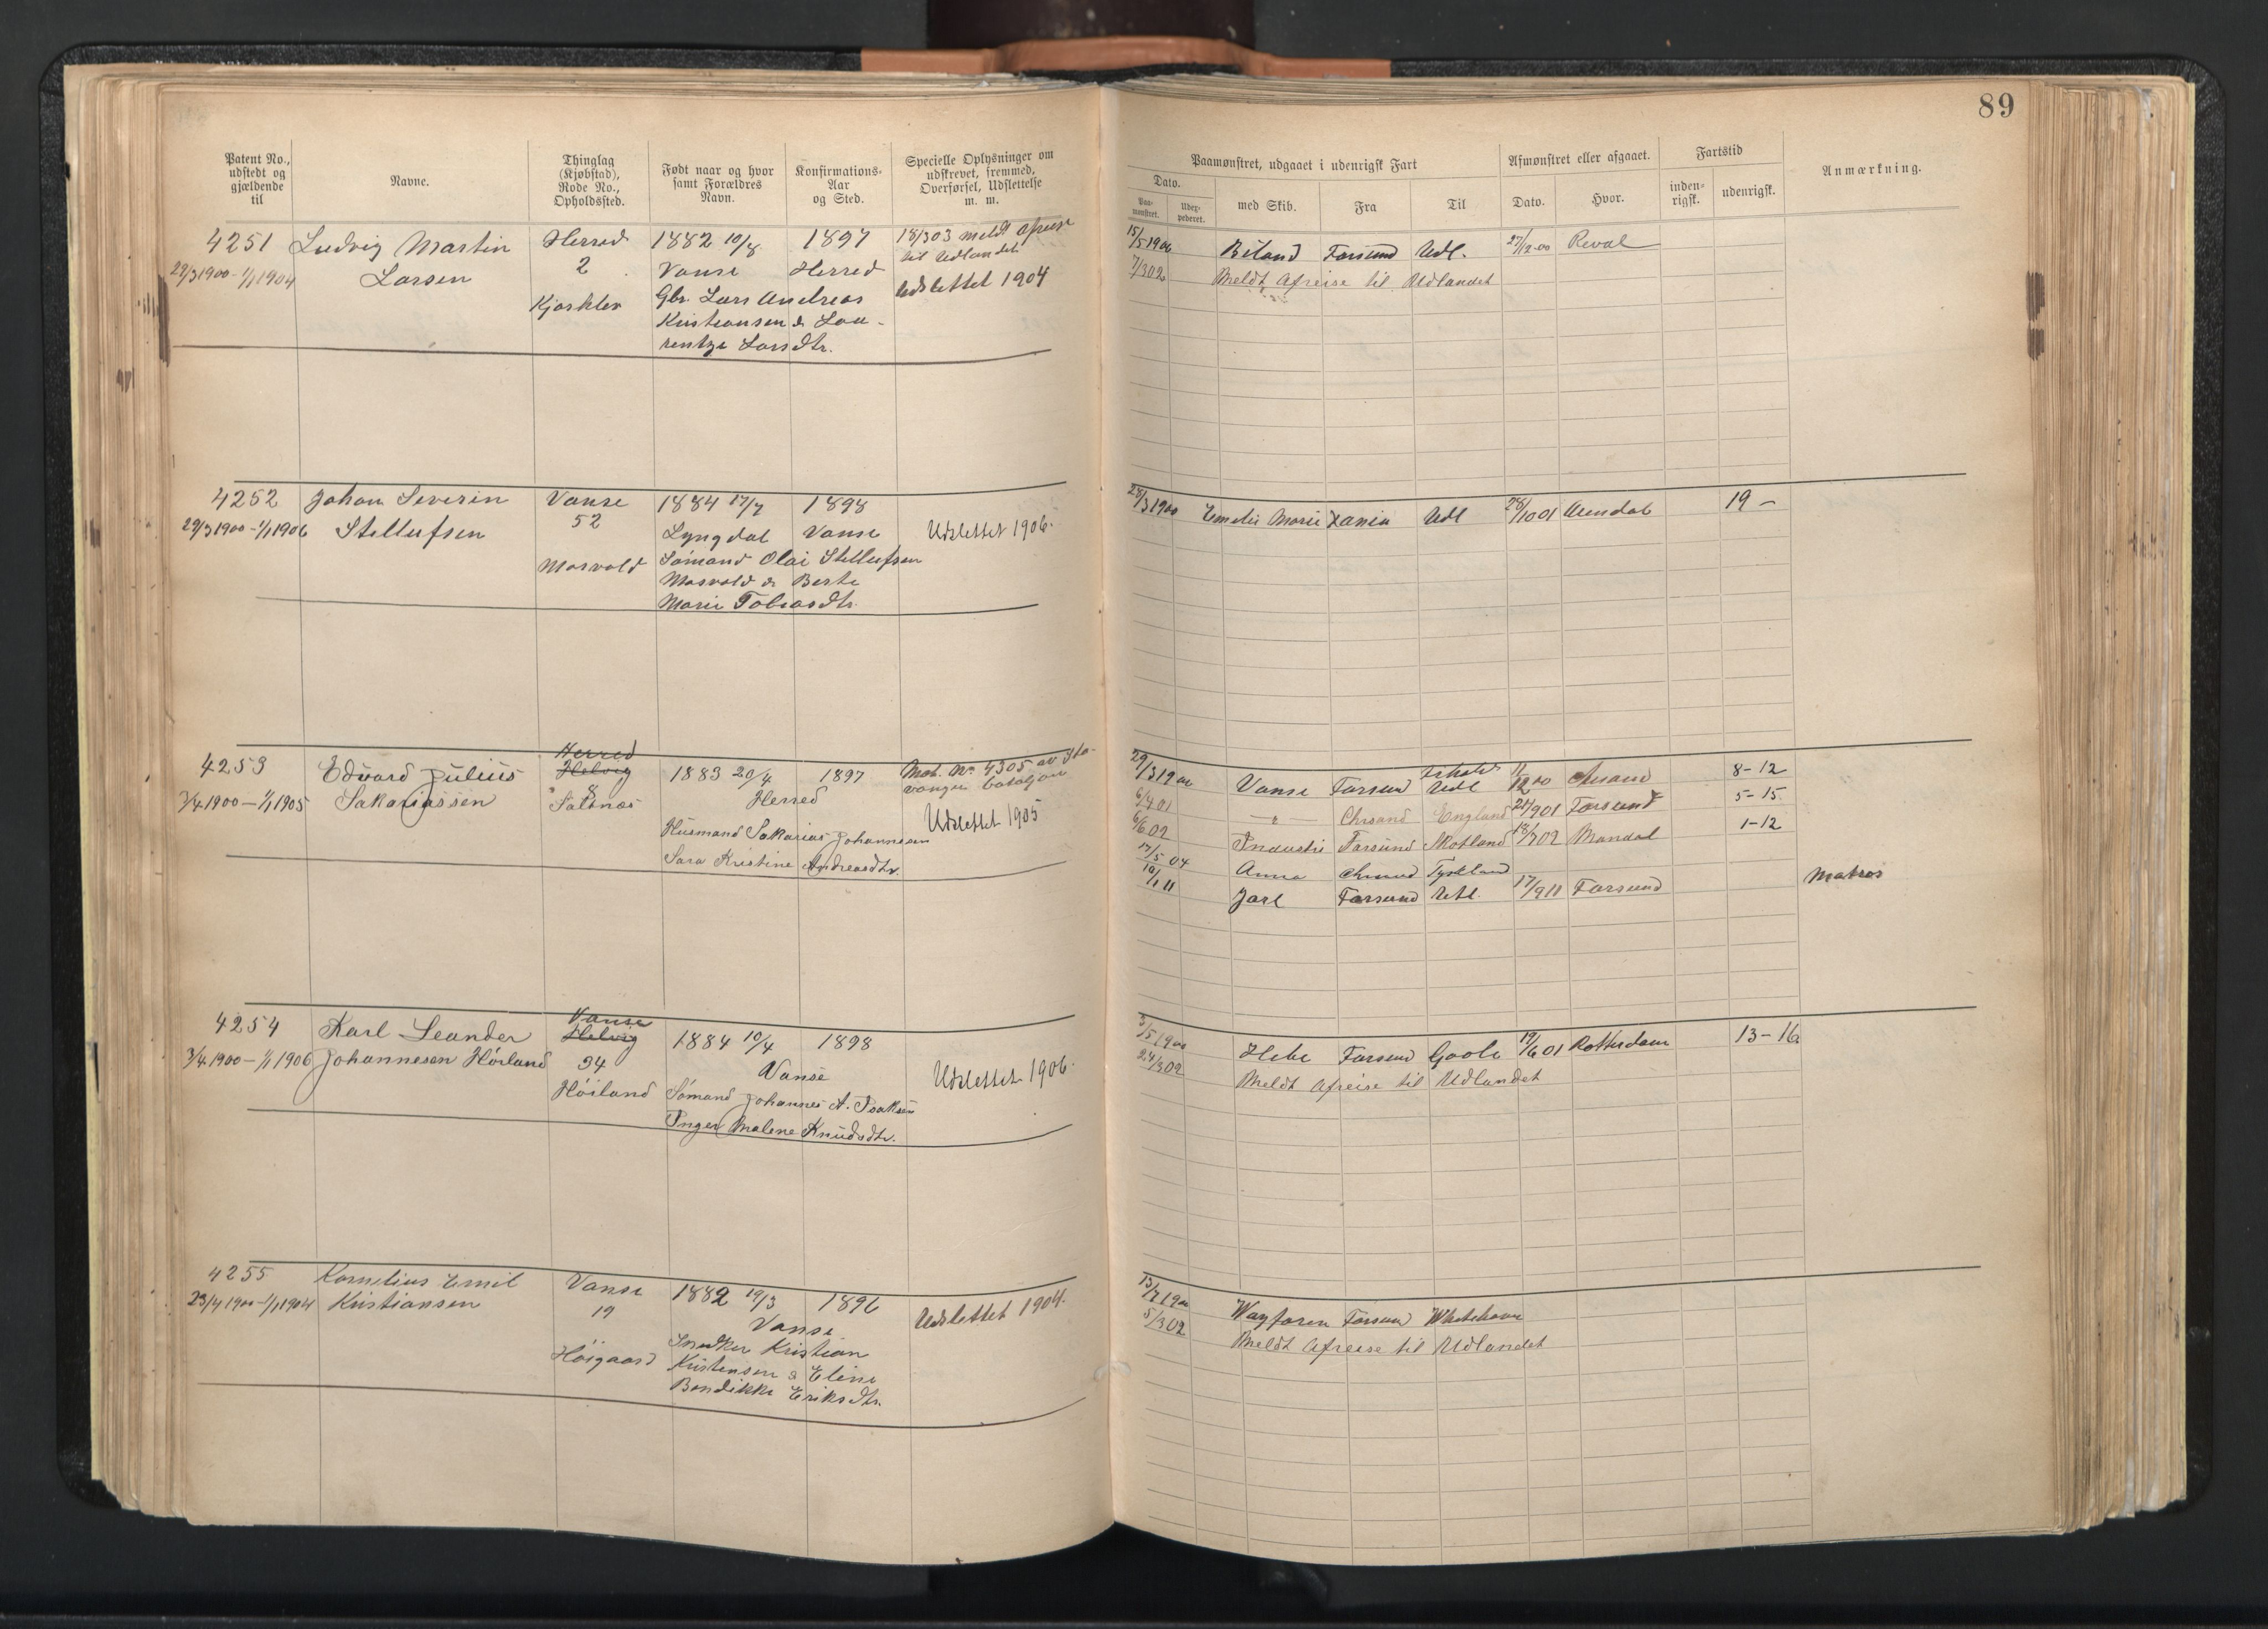 89
Patent No., udstedt og gjældende til
Navne.
Thinglag (Kjøbstad), Rode No., Opholdssted.
Født naar og hvor samt Forældres Navn.
Konfirmations-Aar og Sted.
Specielle Oplysninger om udskrevet, fremmed, Overførsel, Udslettelse m. m.
Paamønstret, udgaaet i udenrigsk Fart
Dato.
Paa-mønstret.
Udex-pederet.
med Skib.
Fra
Til
Afmønstret eller afgaaet.
Dato.
Hvor.
Fartstid
inden-rigsk.
udenrigsk.
Anmærkning.
4251 Ludvig Martin Herred 1882 10/8 1897 18/3 03 meldt afreise
29/3 1900 - 1/1 1904 Larsen 2 Vanse Herred til Udlandet
Gbr. Lars Andreas Udslettet 1904
Kristiansen & Lau-
rentze Larsdtr.
15/5 1900 Farsund Udl. 27/12 00 Reval
7/3 02 Meldt Afreise til Udlandet
4252 Johan Severin Vanse 1884 17/7 1898
29/3 1900 - 1/1 1906 Stellufsen 52 Lyngdal Vanse Udslettet 1906.
Mosvold Sømand Olai Stellufsen
Mosvold & Berte
Marie Tobiasdtr.
28/3 1900 Emelie Marie Udl 28/10 01 Arendal 19 -
Herred
4253 Edvard Julius Helvig 1883 20/4 1897 Mat. No 4305 av Sta-
vanger bataljon
3/4 1900 - 1/1 1905 Sakariassen 8 Saltnes Herred Udslettet 1905
Husmand Sakarias Johannesen
Sara Kristine Andreasdtr.
29/3 1900 Vanse Farsund Udl 12 00 Chrsand 8-12
6/4 01 - " - Chrsand England 21/9 01 Farsund 5-15
6/6 02 Industri Farsund Skotland 18/7 02 Mandal 1-12
17/5 04 Anna Tyskland
10/1 11 Jarl Farsund Udl. 17/9 11 Farsund Matros
Vanse
4254 Karl Leander Helvig 1884 10/4 1898
3/4 1900 - 1/1 1906 Johannesen Høiland 34 Vanse Udslettet 1906.
Høiland Sømand Johannes A. Isaksen
Inger Malene Knudsdtr.
3/5 1900 Hebe Farsund Goole 19/6 01 Rotterdam 13-16
24/3 02 Meldt Afreise til Udlandet
4255 Kornelius Emil Vanse 1882 19/3 1896 Udslettet 1904.
23/4 1900 - 1/1 1904 Kristiansen 19 Vanse
Høigaard Snedker Kristian
Kristensen & Eline
Bendikke Eriksdtr.
13/7 1900 Wayfaren Farsund Whitehaven
5/3 02 Meldt Afreise til Udlandet